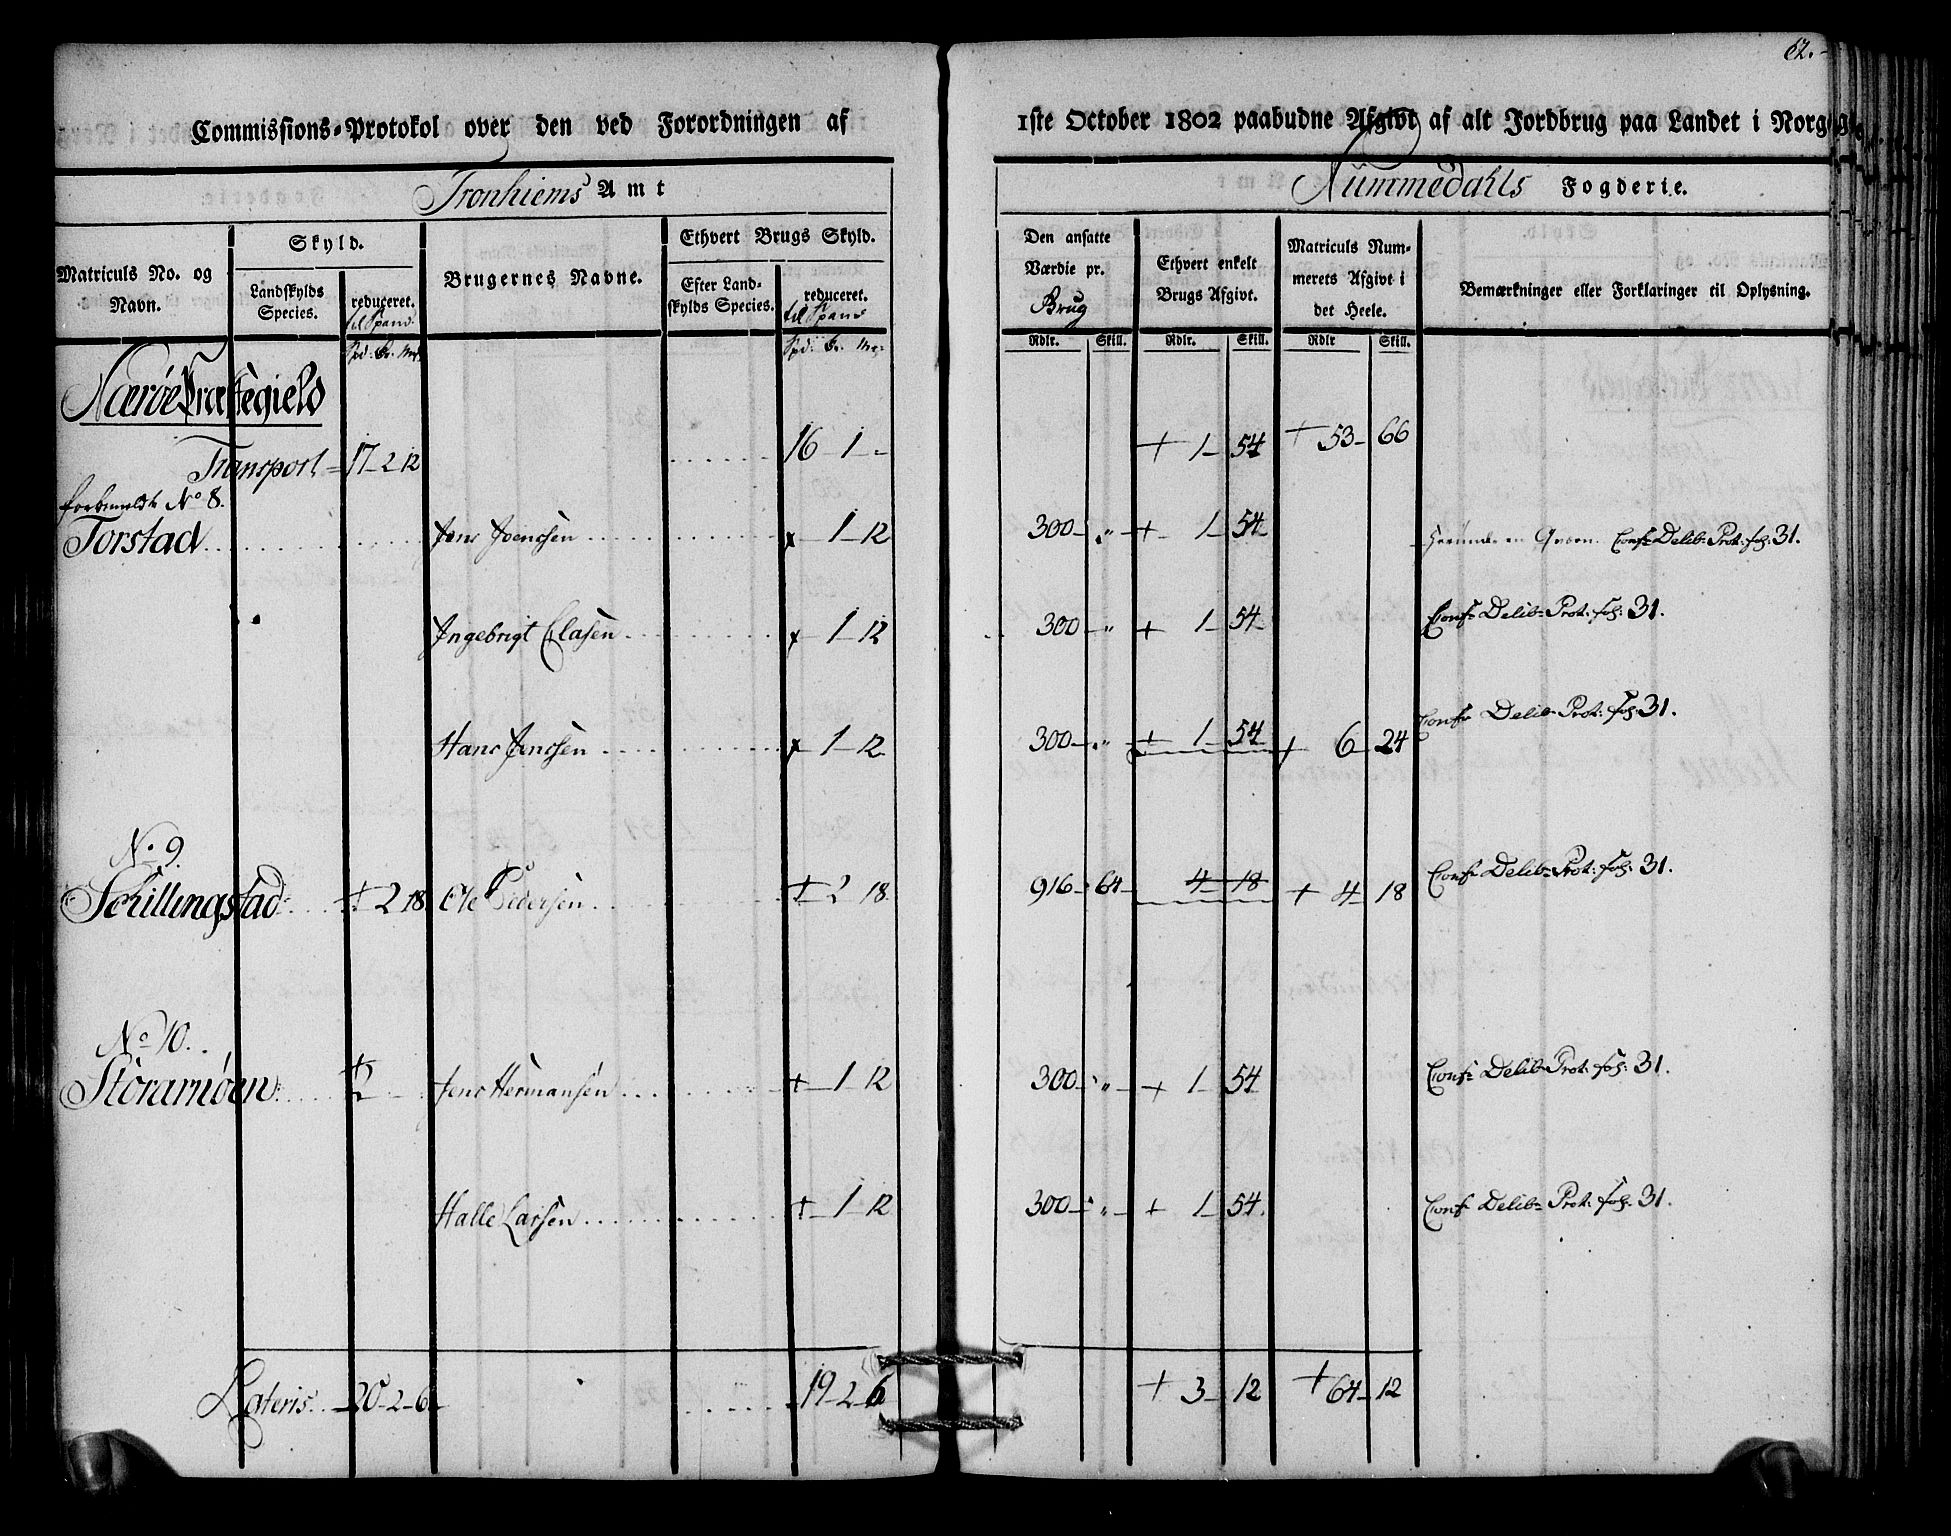 62.
Commissions-Protokol over den ved Forordningen af 1ste October 1802 paabudne Afgivt af alt Jordbrug paa Landet i Norge
Tronhiems Amt
Nummedahls Fogderie.
Matriculs No. og Navn.
Skyld.
Landskylds Species.
reduceret.
til Spand
Spd: Ør. Mrk:
Brugernes Navne.
Ethvert Brugs Skyld.
Efter Landskylds Species.
reduceret.
til Spand
Spd: Ør. Mrk:
Den ansatte Værdie pr.
Brug
Rdlr. Skill.
Ethvert enkelt Brugs Afgivt.
Rdlr. Skill.
Matriculs Nummerets Afgivt i det Heele.
Rdlr Skill.
Bemærkninger eller Forklaringer til Oplysning.
Nærøe Præstegield
Transport = 17 - 2 12 16 - 1 - + 1 - 54 + 53 - 66
forbemeldte No 8.
Torstad Jens Joenssen x - 1 - 12 300 - " - + 1 - 54 Conf: Delib: Prot: fol: 31.
Ingebrigt Olasen x - 1 - 12 300 - " + 1 - 54 Conf: Delib: Prot: fol: 31.
Hans Jenssen x - 1 - 12 300 - " - + 1 - 54 + 6 - 24 Conf: Delib: Prot: fol: 31.
No 9.
Schillingstad + 2 18 Ole Pedersen + 2 18. 916 - 64 - 4 - 18 + 4 - 18 Conf: Delib: Prot: fol: 31.
No 10.
Storamøen + 2 - Jens Hermansen + - 1 - 12 300 - " - + 1 - 54 Conf: Delib: Prot: fol: 31.
Halle Larsen + - 1 - 12 300 - " - + 1 - 54. Conf: Delib: Prot: fol: 31.
Lateris - 20 - 2 - 6 19 - 2 - 6 + 3 - 12 + 64 - 12